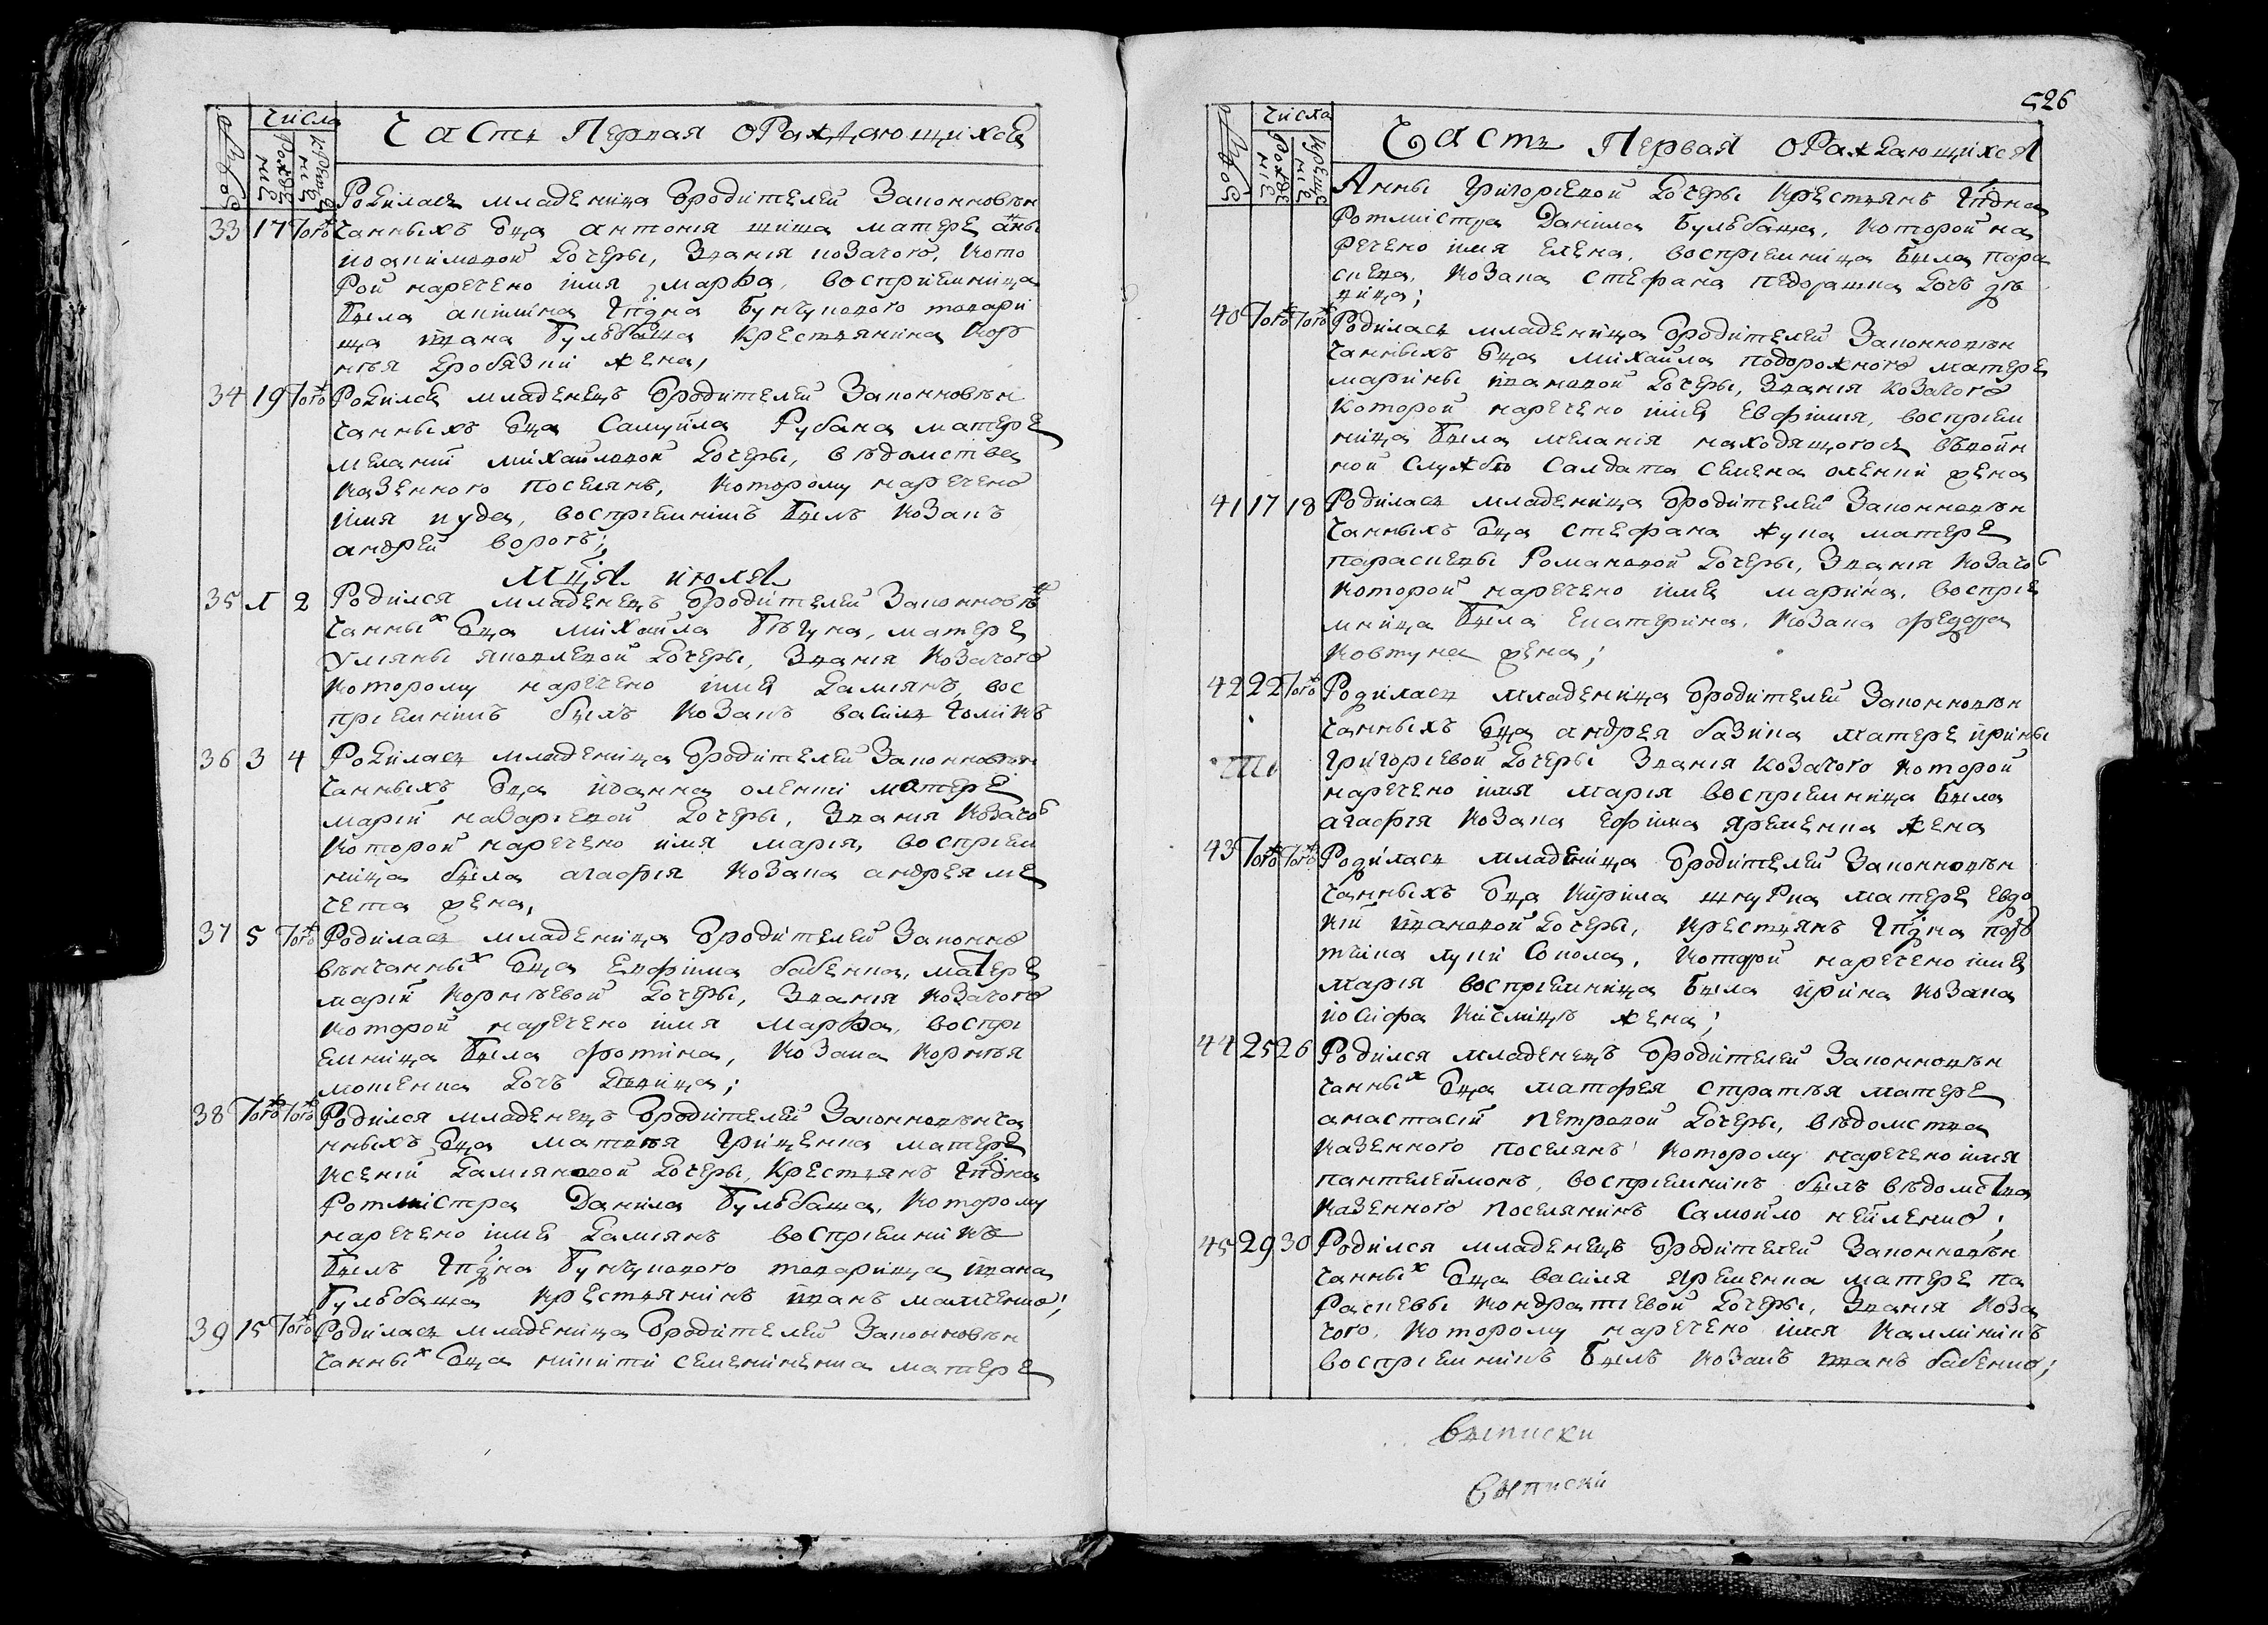 числа
рожде
ние
креще
ние
Часть Первая о Раждающихся
Родилась младеница отродителей законновѣн
33 17 Тогож чанныхъ отца антонія шиша матере анны
иоакимовой дочеры, званія козачого, кото
рой наречено имя марѳа, восприемница
была акилина Гпдна бунчукового товари
ща ивана булюбаша крестьянина кор
нѣя жена,
34 19 Тогож Родился младенецъ отродителей законновѣн
чанныхъ отца самуйла Рубана матере
меланіи михайловой дочеры, вѣдомства
казенного поселянъ, которому наречено
имя иуда, восприемникъ былъ козакъ
андрей ворогъ;
мця июля
35 1 2 Родился младенецъ отродителей законновѣн
чанных отца михаила бѣгуна, матере
улияны яковлевой дочеры, званія козачого
которому наречено имя дамиянъ, вос
приемникъ былъ козакъ василь
36 3 4 Родилась младеница отродителей законновѣн
чанныхъ отца иоанна матере
маріи назариевой дочеры, званія козачого
которой наречено имя марія, восприем
ница была агафія козака андрея ме
чета жена,
37 5 Тогож Родилась младеница отродителей законно
вѣнчанных отца евфима бабенка, матере
маріи корнѣевой дочеры, званія козачого
которой наречено имя марѳа, воспри
емница была фотина, козака корнѣя
мошенка дочь дѣвица;
38 Тогож Тогож Родился младенецъ отродителей законновѣнча
нныхъ отца матвѣя грищенка матере
ксеніи дамияновой дочеры, крестьянъ Гпдна
ротмистра Данила булюбаша, которому
наречено имя дамиянъ восприемникъ
былъ Гпдна бунчукового товарища ивана
булюбаша крестьянинъ иванъ
39 15 Тогож Родилась младеница отродителей законновѣн
чанных отца никити семениченка матере
526
числа
рожде
ние
креще
ние
Часть Первая о Раждающихся
Анны григориевой дочеры крестьянъ Гпдна
Ротмистра Данила булюбаша, которой на
речено имя елена, восприемница была пара
скева, козака стефана педорашка дочь дѣ
вица;
40 Тогож Тогож Родилась младеница отродителей законновѣн
чанныхъ отца михаила подорожного матере
марины ивановой дочеры, званія козачого
которой наречено имя евфимия, восприем
ница была меланія находящогось ввоин
ной службѣ салдата семена жена
41 17 18 Родилась младеница отродителей законновѣн
чанныхъ отца стефана жука матере
параскевы романовой дочеры, званія козачого
которой наречено имя марина, восприе
мница была екатерина, козака федора
ковтуна жена;
42 22 Тогож Родилась младеница отродителей законновѣн
чанныхъ отца андрея базика матере ирины
григориевой дочеры званія козачого которой
наречено имя марія восприемница была
агафія козака ефима яременка жена
43 Тогож Тогож Родилась младеница отродителей законновѣн
чанныхъ отца кирила шкурка матере евдо
кіи ивановой дочеры, крестьянъ Гпдна пору
тчика луки сокола, которой наречено имя
марія восприемница была ирина козака
иосифа жена;
44 25 26 Родился младенецъ отродителей законновѣн
чанных отца матфея стратѣя матере
анастасіи петровой дочеры, вѣдомства
казенного поселянъ которому наречено имя
пантелеймонъ, восприемникъ былъ вѣдомства
казенного поселянинъ самойло нейленко;
45 29 30 Родился младенецъ отродителей законновѣн
чанных отца василя яременка матере па
раскевы кондратиевой дочеры, званія коза
чого, которому наречено имя калиникъ
восприемникъ былъ козакъ иванъ бабенко;
выписки
выписки